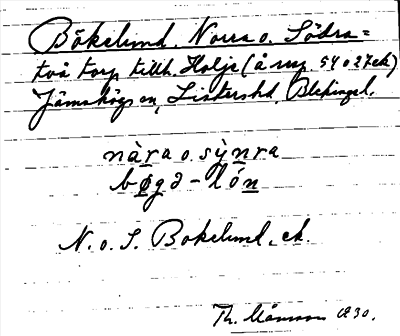 Bökelund, Norra o. Södra =
två torp tillh. Holje (å nr 54 o 27 ek)
Jämshögs sn, Listers hd, Blekinge l.
nàra o. sỳnra
bøgə - lón
N. o. S. Bokelund, ek.
Th. Månsson 1930.